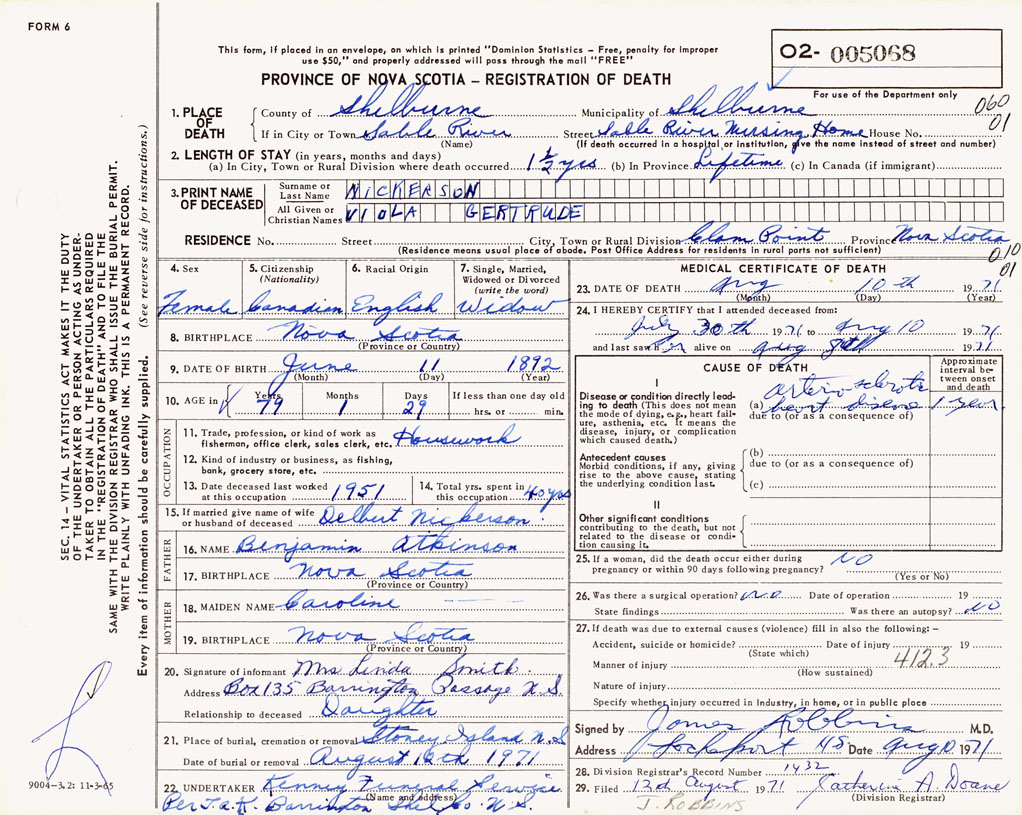 FORM 6
This form, if placed in an envelope, on which is printed "Dominion Statistics – Free, penalty for improper
use $50," and properly addressed will pass through the mail "FREE"
O2- 005068
PROVINCE OF NOVA SCOTIA – REGISTRATION OF DEATH
For use of the Department only
060
01
1. PLACE OF DEATH
County of Shelburne Municipality of Shelburne
If in City or Town Sable River Street Sable River Nursing Home House No.
(Name) (If death occurred in a hospital or institution, give the name instead of street and number)
2. LENGTH OF STAY (in years, months and days)
(a) In City, Town or Rural Division where death occurred 1 1/2 yrs (b) In Province Lifetime (c) In Canada (if immigrant)
3. PRINT NAME OF DECEASED
Surname or Last Name NICKERSON
All Given or Christian Names VIOLA GERTRUDE
RESIDENCE No. Street City, Town or Rural Division Clam Point Province Nova Scotia
(Residence means usual place of abode. Post Office Address for residents in rural parts not sufficient)
010
01
4. Sex
Female
5. Citizenship
(Nationality)
Canadian
6. Racial Origin
English
7. Single, Married,
Widowed or Divorced
(write the word)
Widow
8. BIRTHPLACE Nova Scotia
(Province or Country)
9. DATE OF BIRTH June 11 1892
(Month) (Day) (Year)
10. AGE in
Years Months Days If less than one day old
79 1 29 hrs. or min.
OCCUPATION
11. Trade, profession, or kind of work as
fisherman, office clerk, sales clerk, etc. Housework
12. Kind of industry or business, as fishing,
bank, grocery store, etc.
13. Date deceased last worked
at this occupation 1951
14. Total yrs. spent in
this occupation 40 yrs
15. If married give name of wife
or husband of deceased Delbert Nickerson
FATHER
16. NAME Benjamin Atkinson
17. BIRTHPLACE Nova Scotia
(Province or Country)
MOTHER
18. MAIDEN NAME Caroline
19. BIRTHPLACE Nova Scotia
(Province or Country)
20. Signature of informant Mrs Linda Smith
Address Box 135 Barrington Passage N.S.
Relationship to deceased Daughter
21. Place of burial, cremation or removal Stoney Island N.S
Date of burial or removal August 12th 1971
22. UNDERTAKER Kenney Funeral Service
(Name and address)
Per J.a.K. Barrington Shel Co. N.S.
MEDICAL CERTIFICATE OF DEATH
23. DATE OF DEATH Aug 10th 1971
(Month) (Day) (Year)
24. I HEREBY CERTIFY that I attended deceased from:
July 30th 1971 to Aug 10 1971
and last saw her alive on Aug 8th 1971
CAUSE OF DEATH
Approximate
interval be-
tween onset
and death
I
Disease or condition directly lead-
ing to death (This does not mean
the mode of dying, e.g., heart fail-
ure, asthenia, etc. It means the
disease, injury, or complication
which caused death.)
arteriosclerotic
(a) heart disease 1 year
due to (or as a consequence of)
Antecedent causes
Morbid conditions, if any, giving
rise to the above cause, stating
the underlying condition last.
(b)
due to (or as a consequence of)
(c)
II
Other significant conditions
contributing to the death, but not
related to the disease or condi-
tion causing it.
25. If a woman, did the death occur either during
pregnancy or within 90 days following pregnancy? NO
(Yes or No)
26. Was there a surgical operation? No Date of operation 19
State findings Was there an autopsy? NO
27. If death was due to external causes (violence) fill in also the following: –
Accident, suicide or homicide? Date of injury 19
(State which) 412.3
Manner of injury
(How sustained)
Nature of injury
Specify whether injury occurred in Industry, in home, or in public place
Signed by James Robbins M.D.
Address Lockeport NS Date Aug 10 1971
28. Division Registrar's Record Number 1432
29. Filed 12th August 1971 Catherine A. Doane
(Division Registrar)
J. ROBBINS
SEC. 14 – VITAL STATISTICS ACT MAKES IT THE DUTY
OF THE UNDERTAKER OR PERSON ACTING AS UNDER-
TAKER TO OBTAIN ALL THE PARTICULARS REQUIRED
IN THE "REGISTRATION OF DEATH" AND TO FILE THE
SAME WITH THE DIVISION REGISTRAR WHO SHALL ISSUE THE BURIAL PERMIT.
WRITE PLAINLY WITH UNFADING INK. THIS IS A PERMANENT RECORD.
Every item of information should be carefully supplied. (See reverse side for instructions.)
9004–3.2: 11-3-65